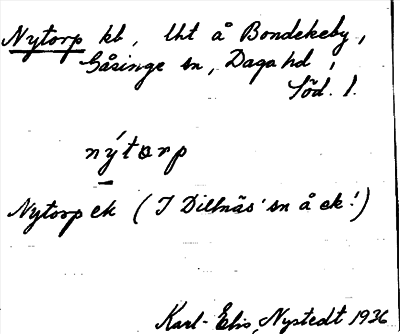 Nytorp kb, lht å Bondekeby,
Gåsinge sn, Daga hd,
Söd. l.
nýtorp
Nytorp ek (I Dillnäs' sn å ek!)
Karl-Elis Nystedt 1936